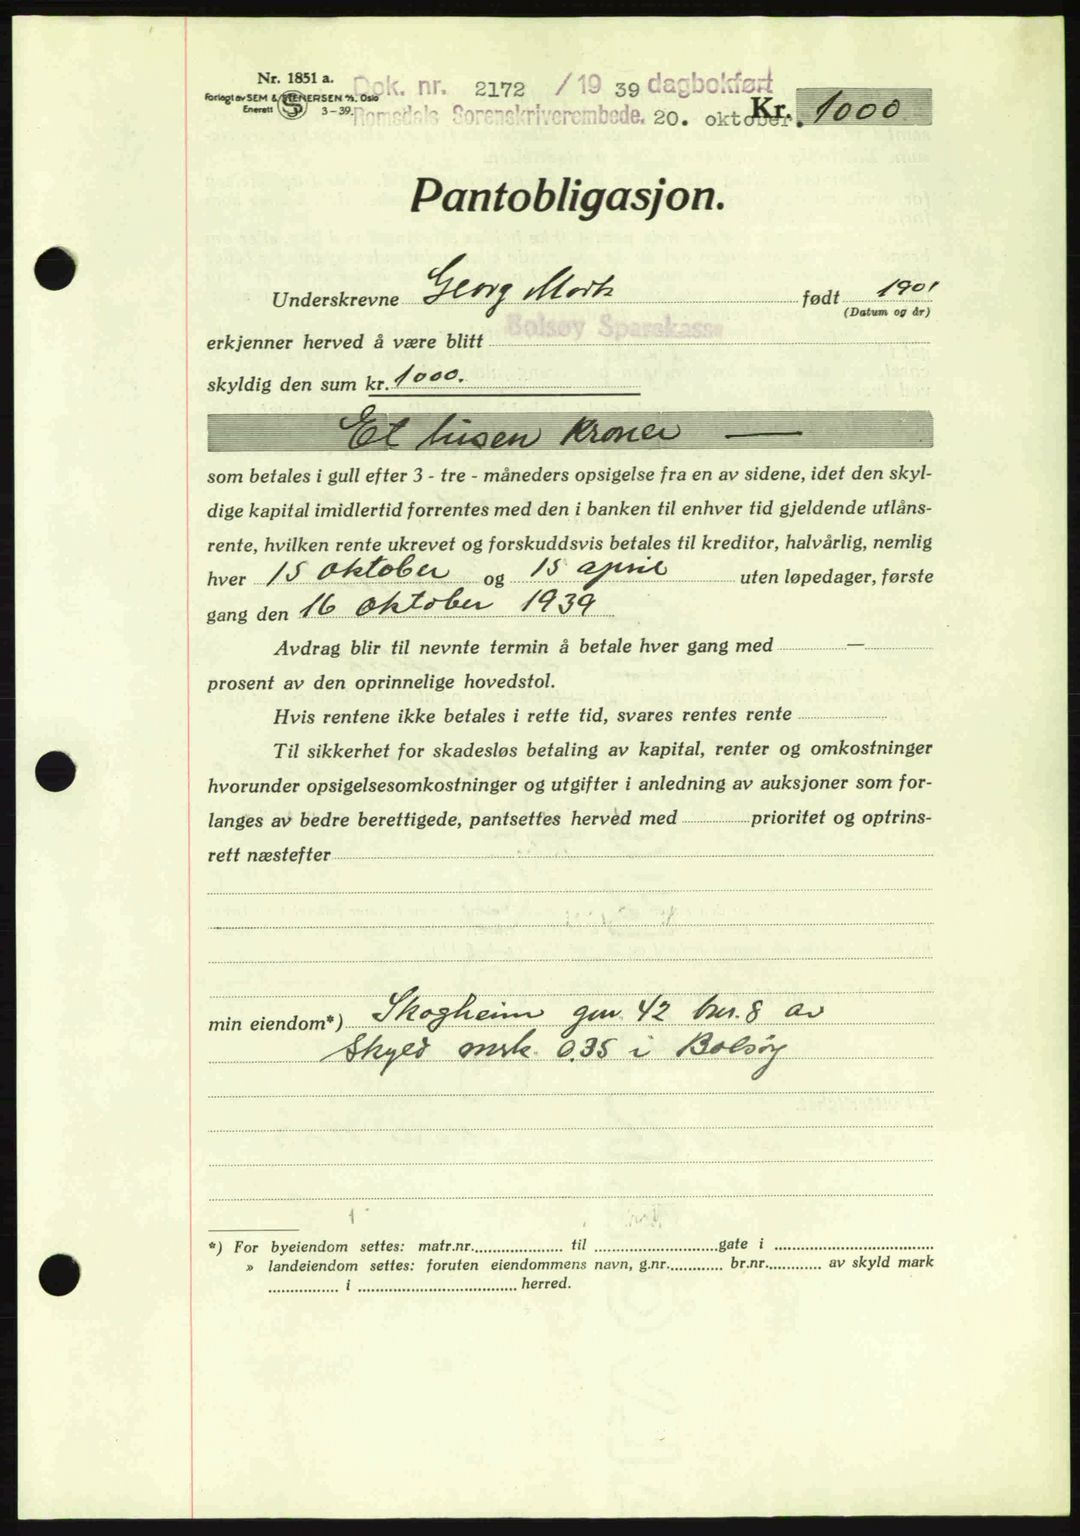 Nr. 1851 a.
Forlagt av SEM & STENERSEN A/S. Oslo
Enerett 3-39.
Dok. nr. 2172 / 19 39 dagbokført
Romsdals Sorenskriverembede. 20. oktober.
Kr. 1000
Pantobligasjon.
Underskrevne Georg Mork født 1901
(Datum og år)
erkjenner herved å være blitt Bolsøy Sparekasse
skyldig den sum kr. 1000.
Et tusen kroner —
som betales i gull efter 3 - tre - måneders opsigelse fra en av sidene, idet den skyl-
dige kapital imidlertid forrentes med den i banken til enhver tid gjeldende utlåns-
rente, hvilken rente ukrevet og forskuddsvis betales til kreditor, halvårlig, nemlig
hver 15 oktober og 15 april uten løpedager, første
gang den 16 oktober 1939
Avdrag blir til nevnte termin å betale hver gang med —
prosent av den oprinnelige hovedstol.
Hvis rentene ikke betales i rette tid, svares rentes rente
Til sikkerhet for skadesløs betaling av kapital, renter og omkostninger
hvorunder opsigelsesomkostninger og utgifter i anledning av auksjoner som for-
langes av bedre berettigede, pantsettes herved med prioritet og optrins-
rett næstefter
min eiendom*) Skogheim gnr. 42 bnr. 8 av
Skyld mrk. 0.35 i Bolsøy
*) For byeiendom settes: matr.nr. til gate i
» landeiendom settes: foruten eiendommens navn, g.nr. br.nr. av skyld mark
i herred.